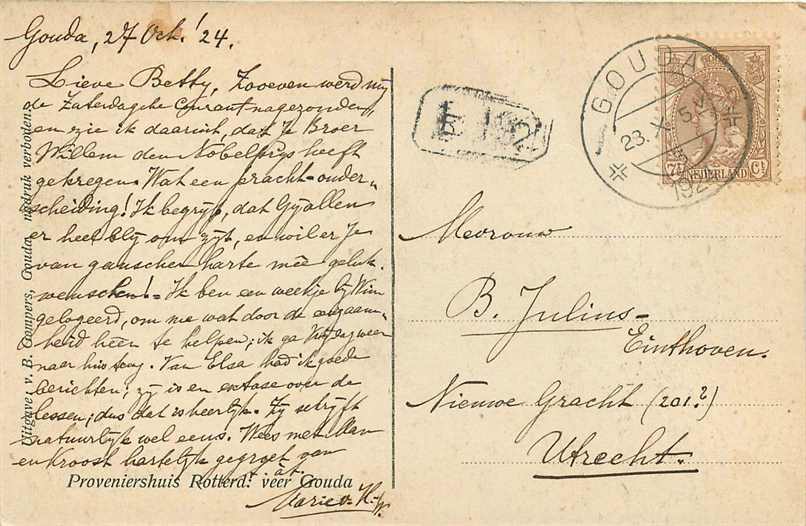 Gouda, 27 Oct. '24.
Lieve Betsy, Zooeven werd mij
de Zaterdagsche Courant nagezonden,
en zie ik daarin, dat Je Broer
Willem den Nobelprijs heeft
gekregen. Wat een pracht-onder-
scheiding! Ik begrijp, dat Gij allen
er heel blij om zijt, en wil er Je
van ganscher harte mêe geluk-
wenschen! - Ik ben een weekje bij Wim
gelogeerd, om me wat door de eenzaam-
heid heen te helpen; ik ga Vrijdag weer
naar huis terug. Van Elsa had ik goede
berichten; zij is en extase over de
lessen; dus dat is heerlijk. Zij schrijft
natuurlijk wel eens. Wees met Man
en Kroost hartelijk gegroet van
Marie v. H.
Proveniershuis Rotterd. veer Gouda
Uitgave v. B. Gompers, Gouda, nadruk verboden.
GOUDA
23. X 5
192
NEDERLAND
7½ Ct
Mevrouw
B. Julius-
Einthoven.
Nieuwe Gracht (201?)
Utrecht.